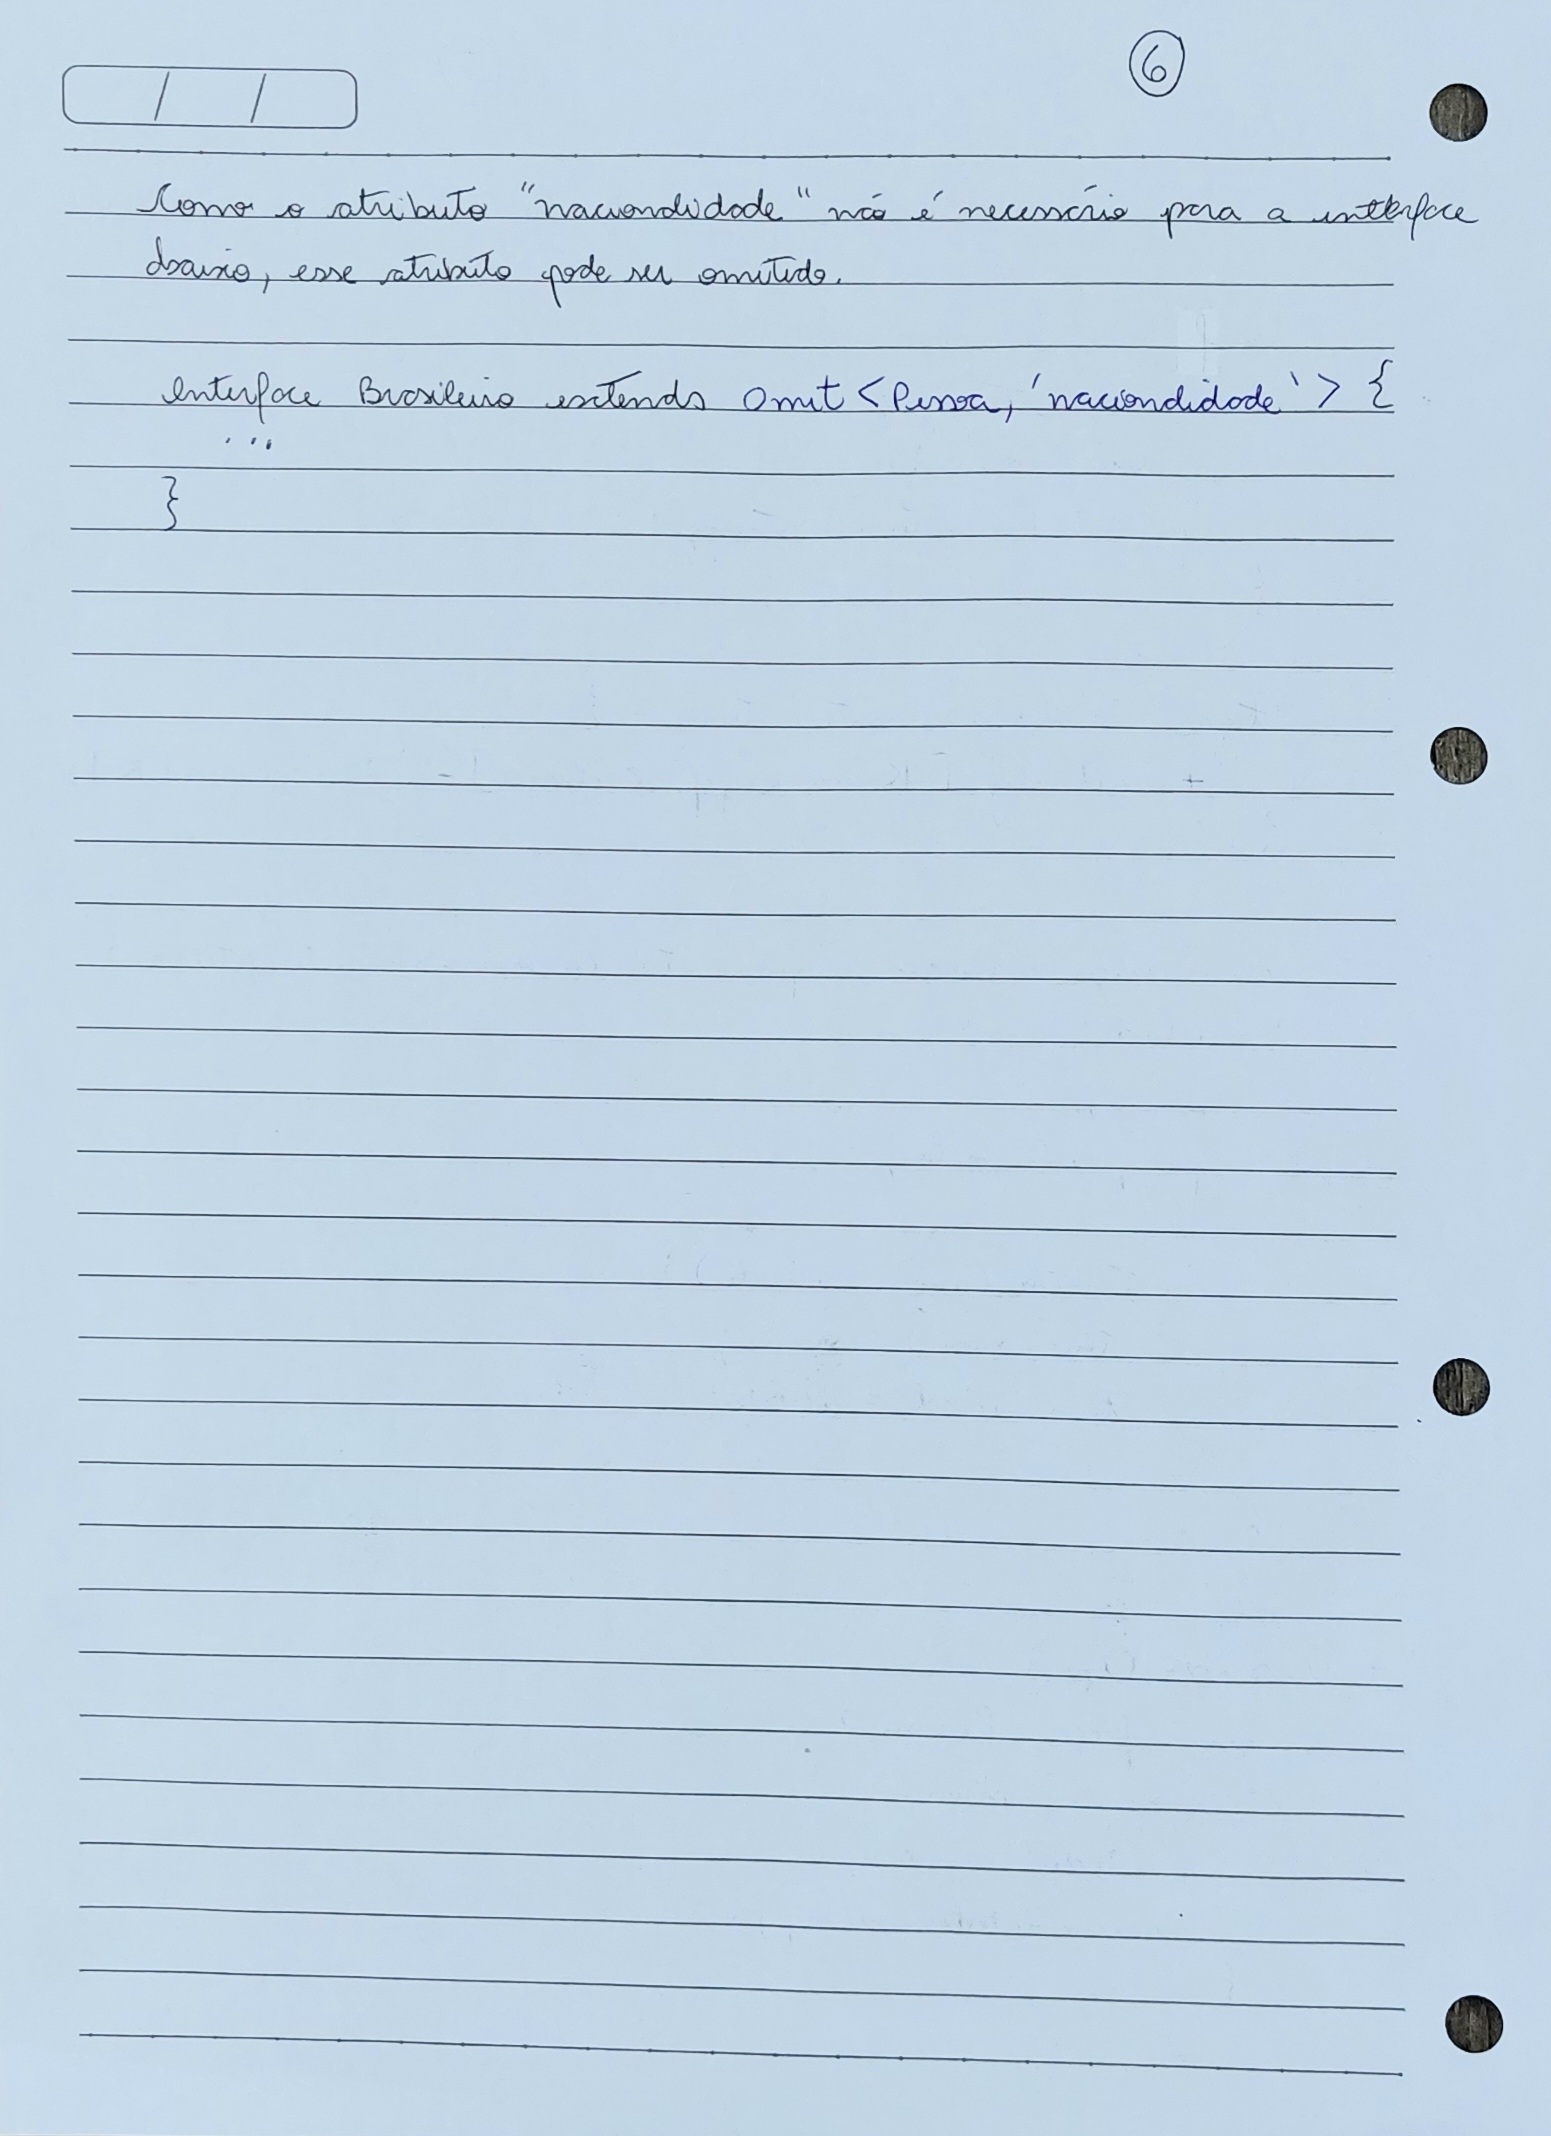 6
Como o atributo "nacionalidade" não é necessário para a interface
abaixo, esse atributo pode ser omitido.
interface Brasileiro extends Omit <Pessoa, 'nacionalidade'> {
...
}